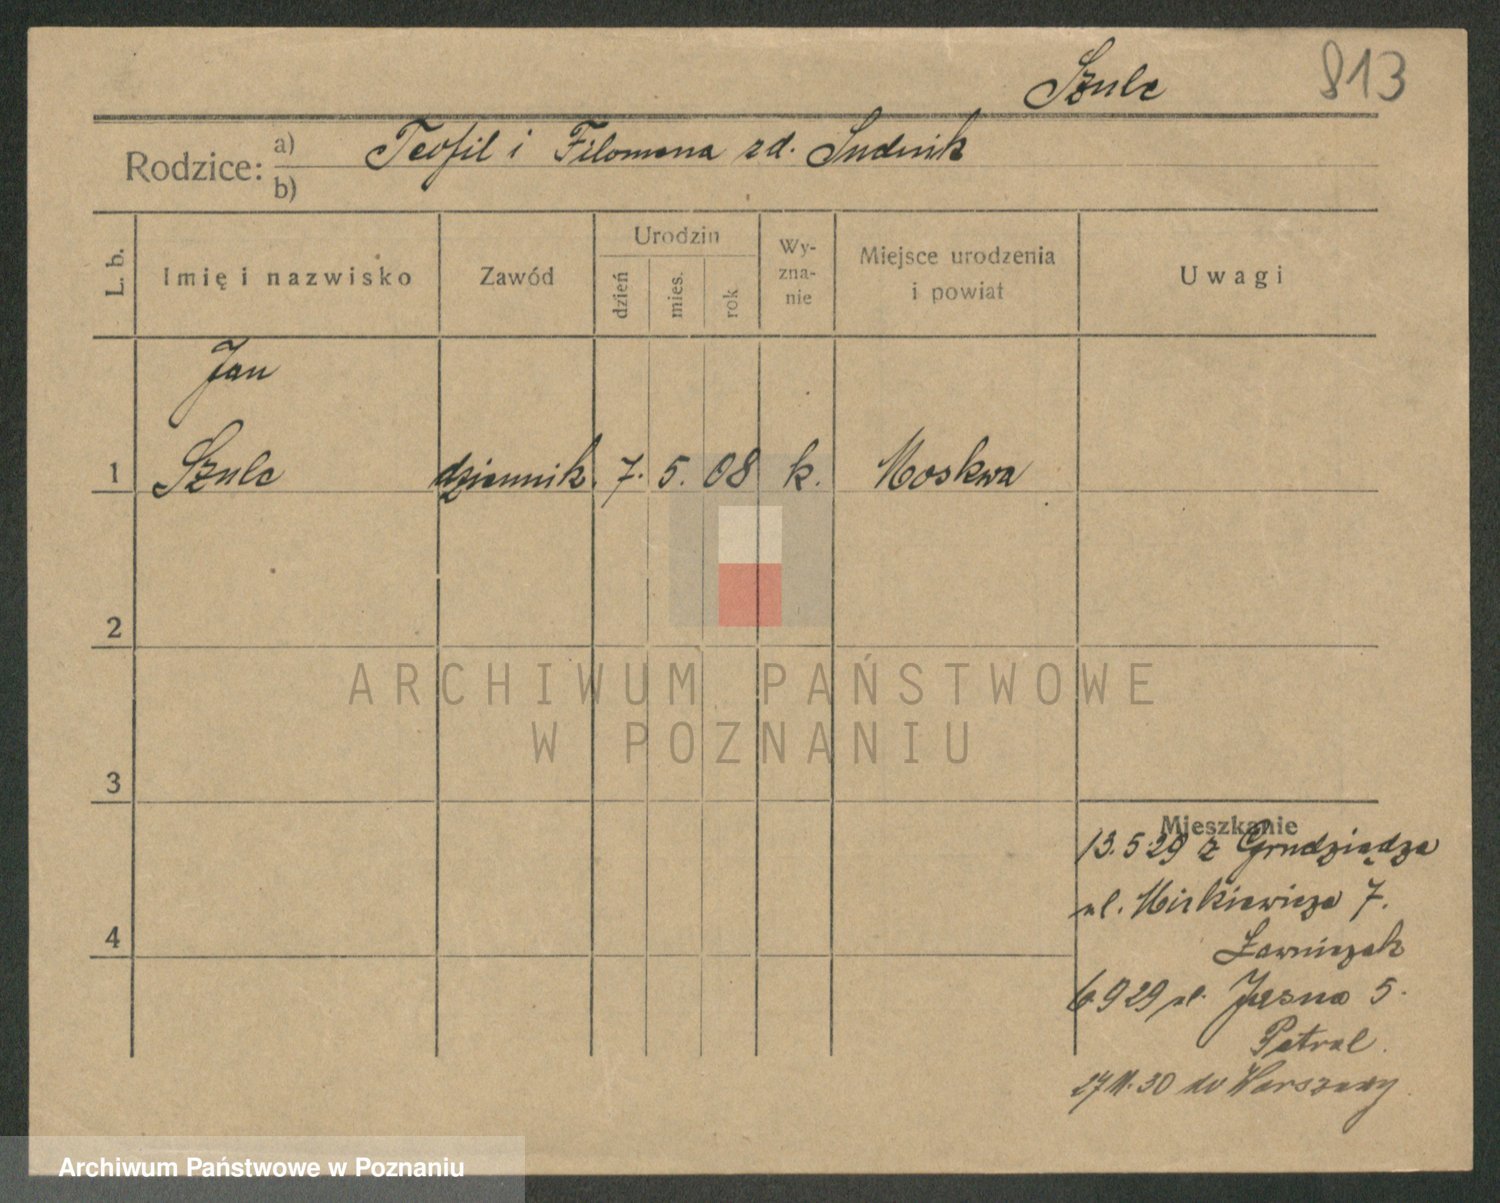 Szulc 813
Rodzice: a) Teofil i Filomena zd. Sudnik
b)
L. b. Imię i nazwisko Zawód Urodzin dzień mies. rok Wyzna-nie Miejsce urodzenia i powiat Uwagi
Jan
1 Szulc dziennik. 7. 5. 08 k. Moskwa
2
ARCHIWUM PAŃSTWOWE
W POZNANIU
3
Mieszkanie
13.5.29 z Grudziądza
ul. Mickiewicza 7.
4
Ławniczak
6 9 29 ul. Jasna 5.
Petral.
27 11. 30 do Warszawy
Archiwum Państwowe w Poznaniu